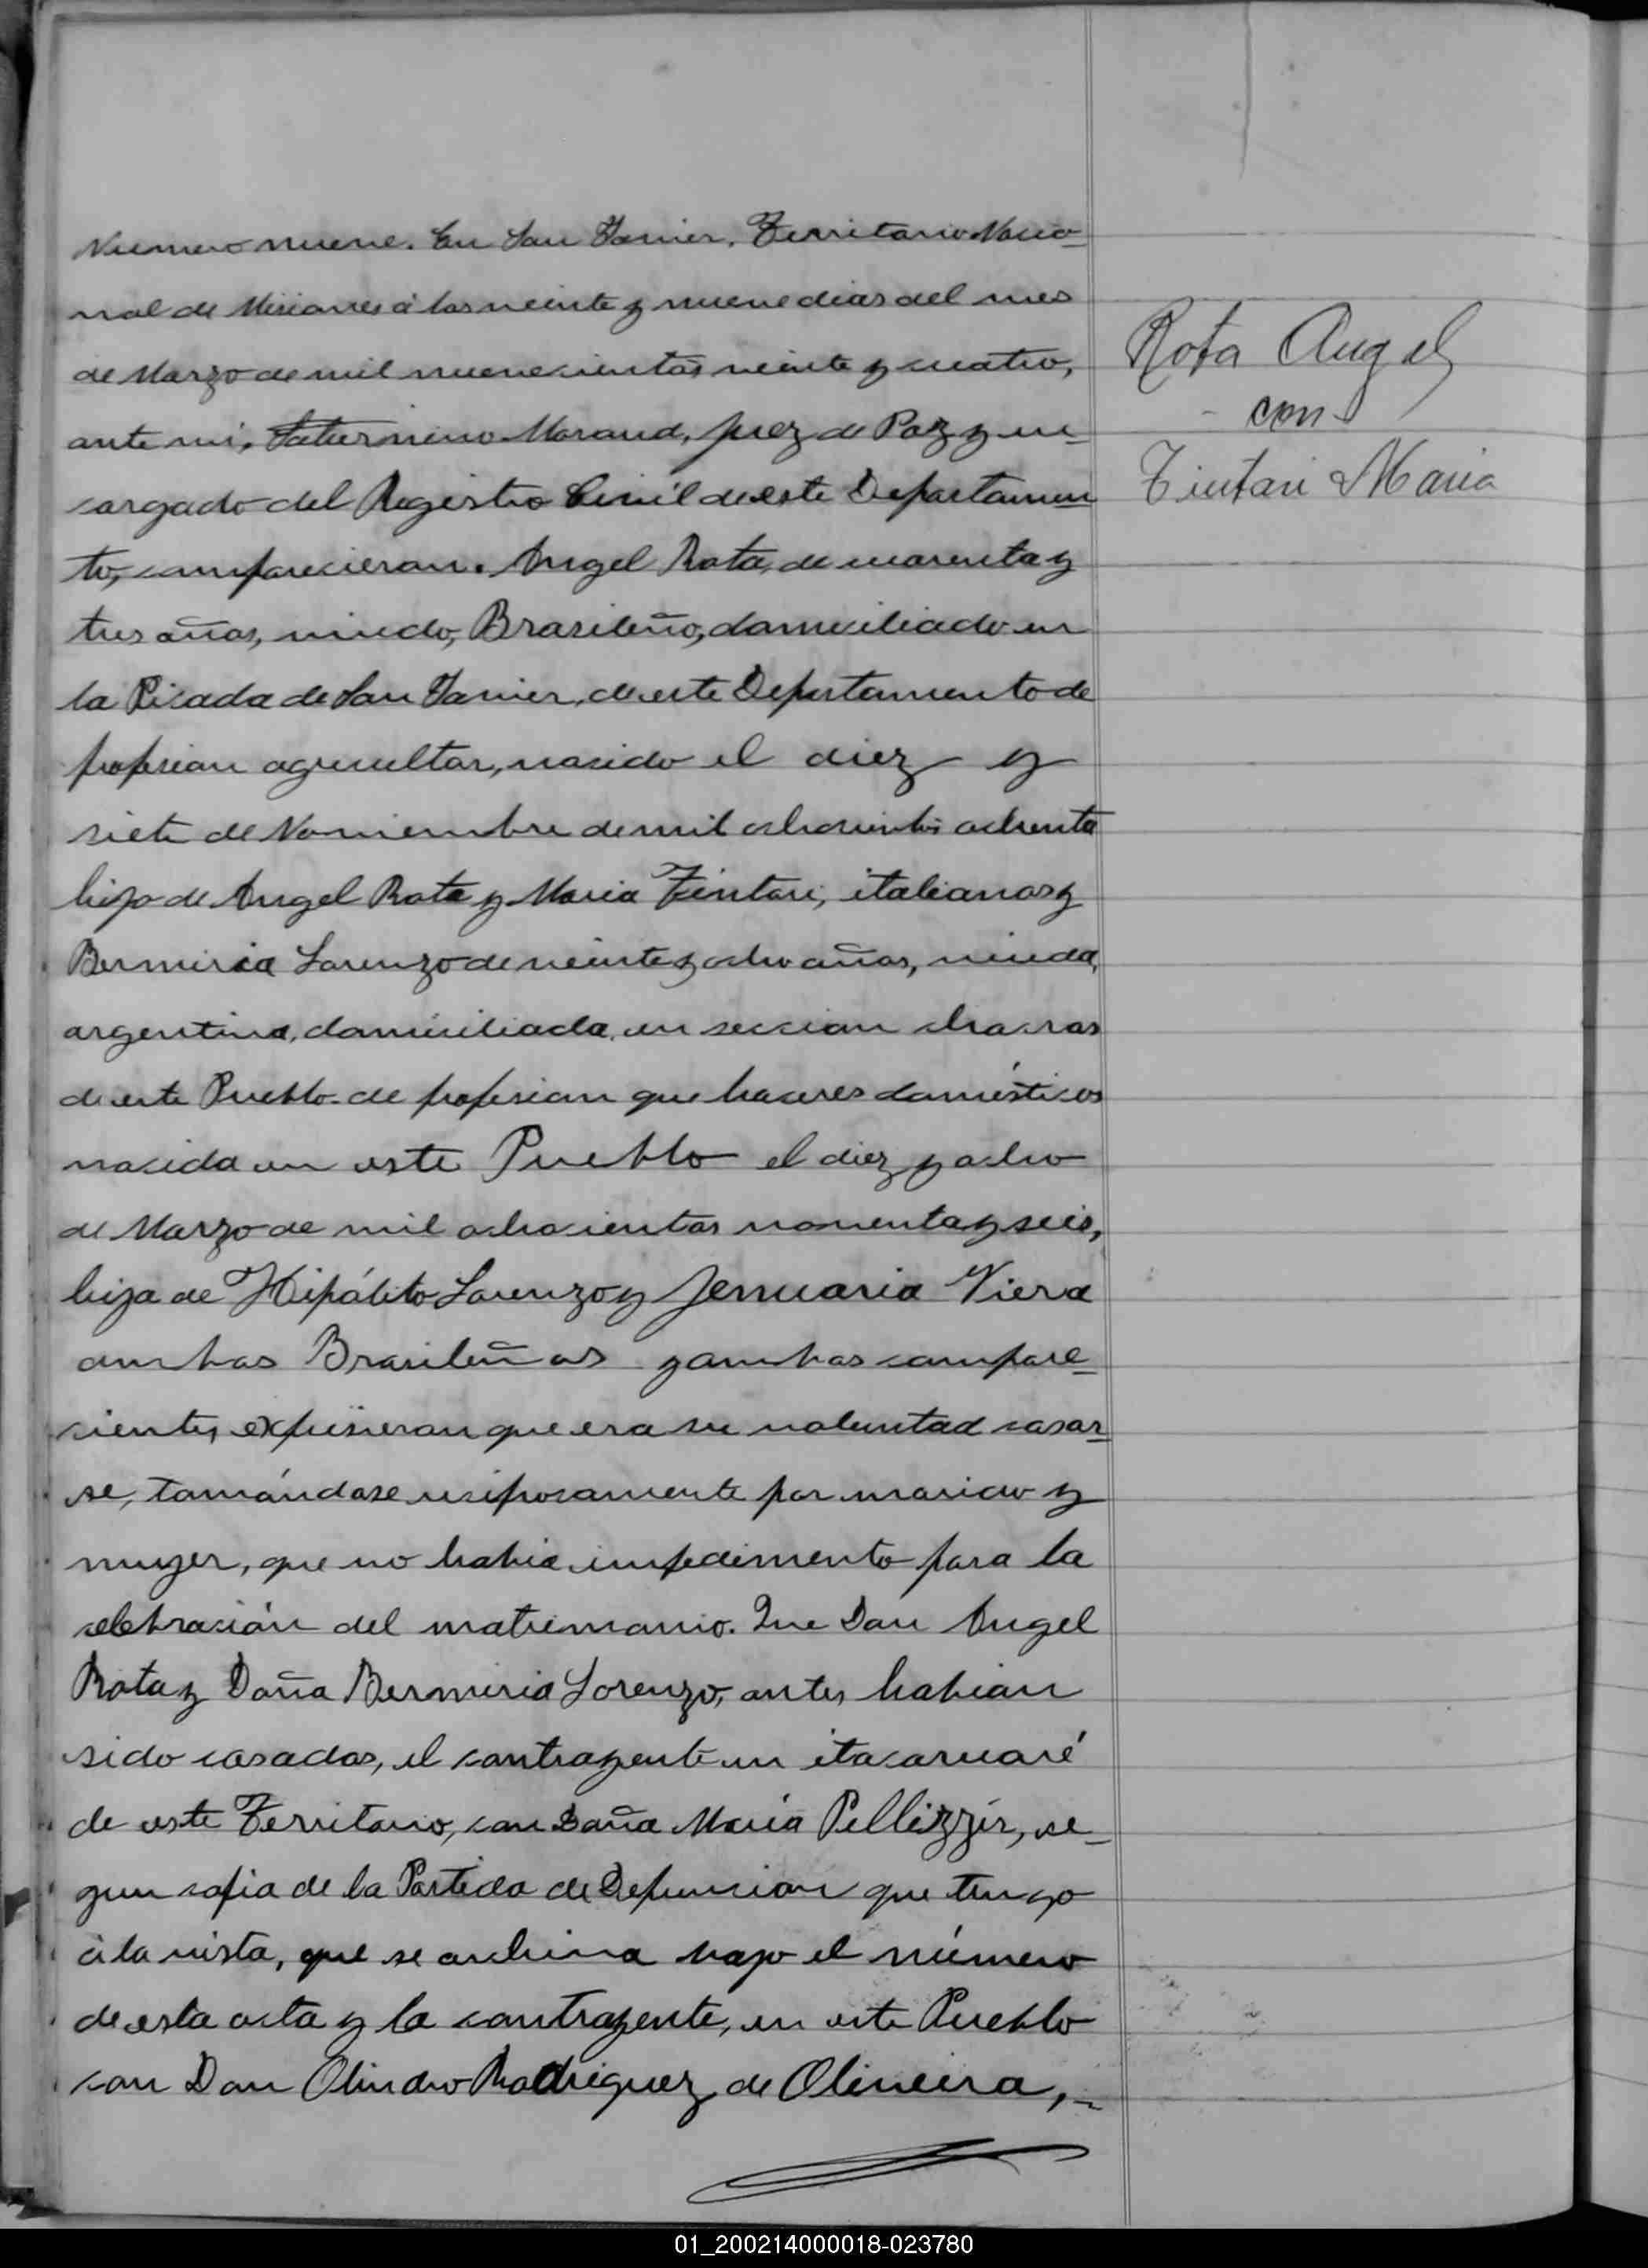 Numero nueve. En San Javier, Territorio Nacio-
nal de Misiones á los veinte y nueve dias del mes
de Marzo de mil nuevecientos veinte y cuatro,
ante mi, Saturnino Morand, Juez de Paz y en-
cargado del Registro Civil de este Departamen-
to, comparecieron. Angel Rota, de cuarenta y
tres años, viudo, Brasileño, domiciliado en
la Picada de San Javier, de este Departamento de
profesion agricultor, nacido el diez y
siete de Noviembre de mil ochocientos ochenta
hijo de Angel Rota y Maria Tintari, italianos y
Bermiria Lorenzo de veinte y ocho años, viuda,
argentina, domiciliada, en seccion chacras
de este Pueblo de profesion que haceres domésticos
nacida en este Pueblo el diez y ocho
de Marzo de mil ochocientos noventa y seis,
hija de Hipólito Lorenzo y Jenuaria Viera
ambos Brasileños y ambos compare-
cientes, expusieron que era su voluntad casar-
se, tomándose resiprosamente por marido y
mujer, que no habia impedimento para la
celebración del matrimonio. Que Don Angel
Rota y Doña Bermiria Lorenzo, antes habian
sido casados, el contrayente en itacaruaré
de este Territorio, con Doña Maria Pellizzir, se-
gun copia de la Partida de Defuncion que tengo
á la vista, que se archiva bajo el número
de esta acta y la contrayente, en este Pueblo
con Don Olindro Rodriguez de Oliveira,-
Rota Angel
con
Tintari Maria
01_200214000018-023780